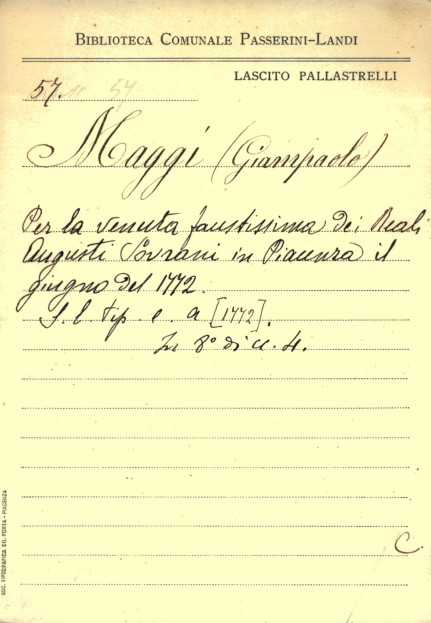 BIBLIOTECA COMUNALE PASSERINI-LANDI
LASCITO PALLASTRELLI
57.
Maggi (Giampaolo)
Per la venuta faustissima dei Reali
Augusti Sovrani in Piacenza il
giugno del 1772.
S. l. tip. e. a [1772].
In 8° di c. 4.
C.
SOC. TIPOGRAFICA ED. PORTA - PIACENZA